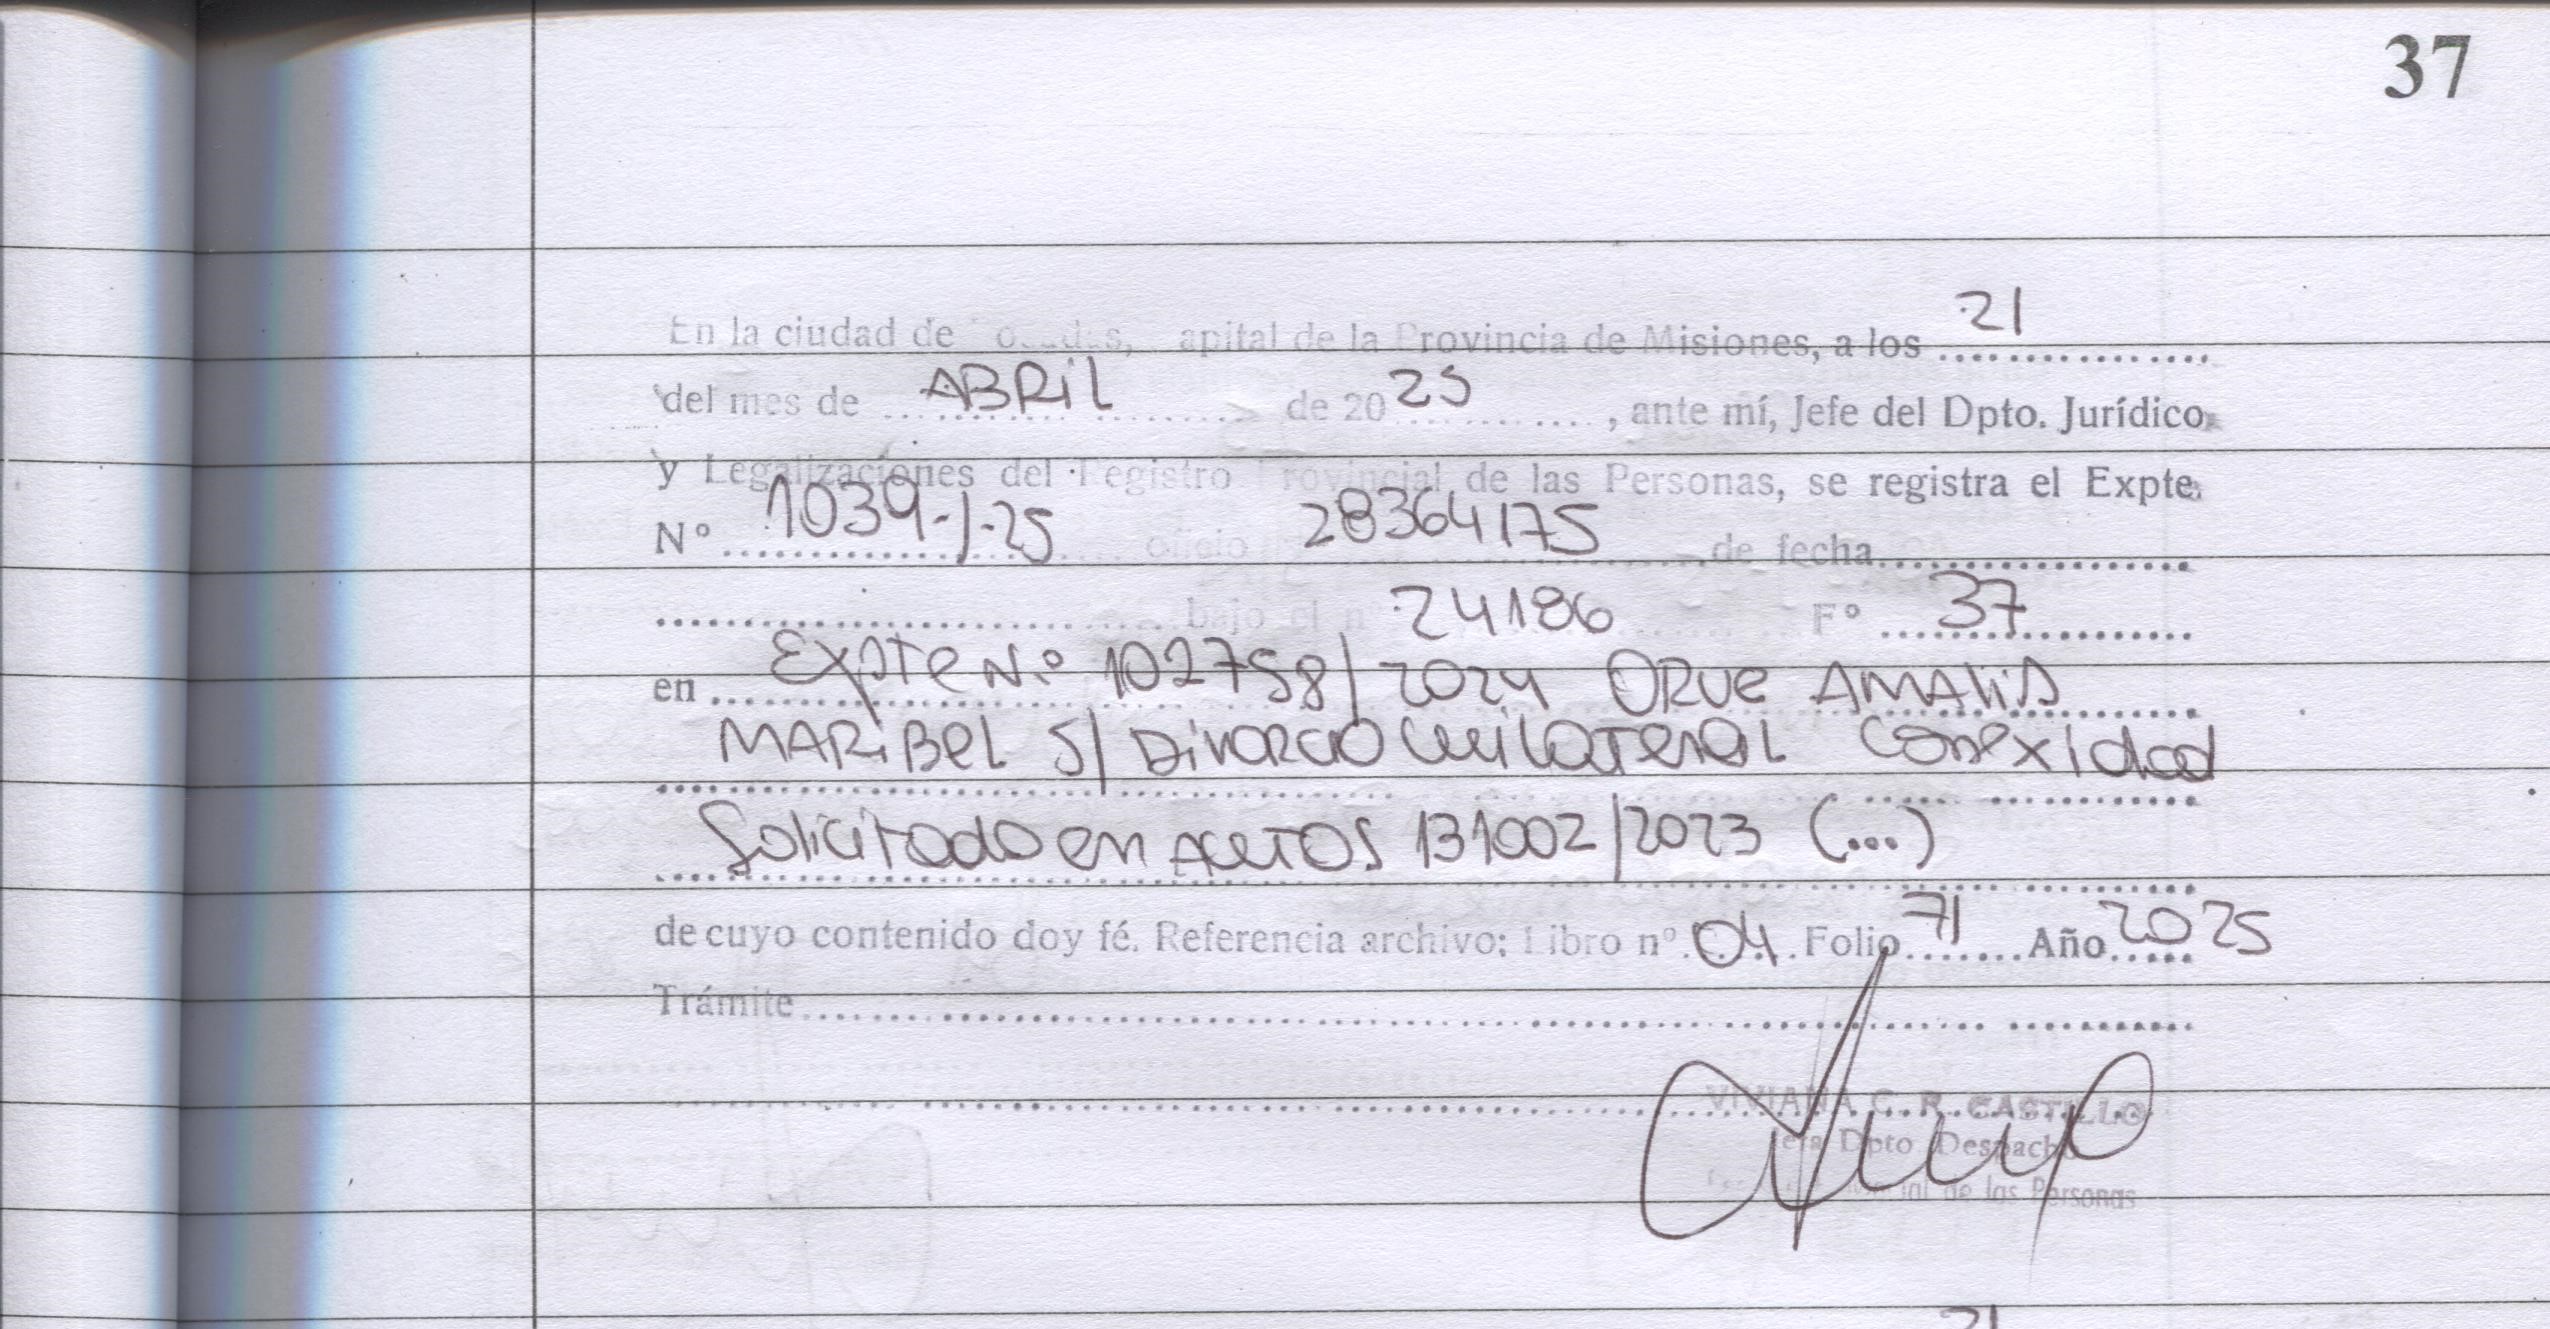 37
En la ciudad de Posadas, Capital de la Provincia de Misiones, a los 21
del mes de ABRil de 2025, ante mí, Jefe del Dpto. Jurídico
y Legalizaciones del Registro Provincial de las Personas, se registra el Expte.
Nº 1039-J-25 oficio 28364175 de fecha
bajo el nº 24186 Fº 37
en Expte N.º 102758/2024 ORUe AMAliA
MARiBeL S/ Divorcio unilateral Conexidad
Solicitado en AUTOS 131002/2023 (...)
de cuyo contenido doy fé. Referencia archivo: Libro nº 04 Folio 71 Año 2025
Trámite
VIVIANA C. R. CASTILLO
Jefa Dpto Despacho
de las Personas
21